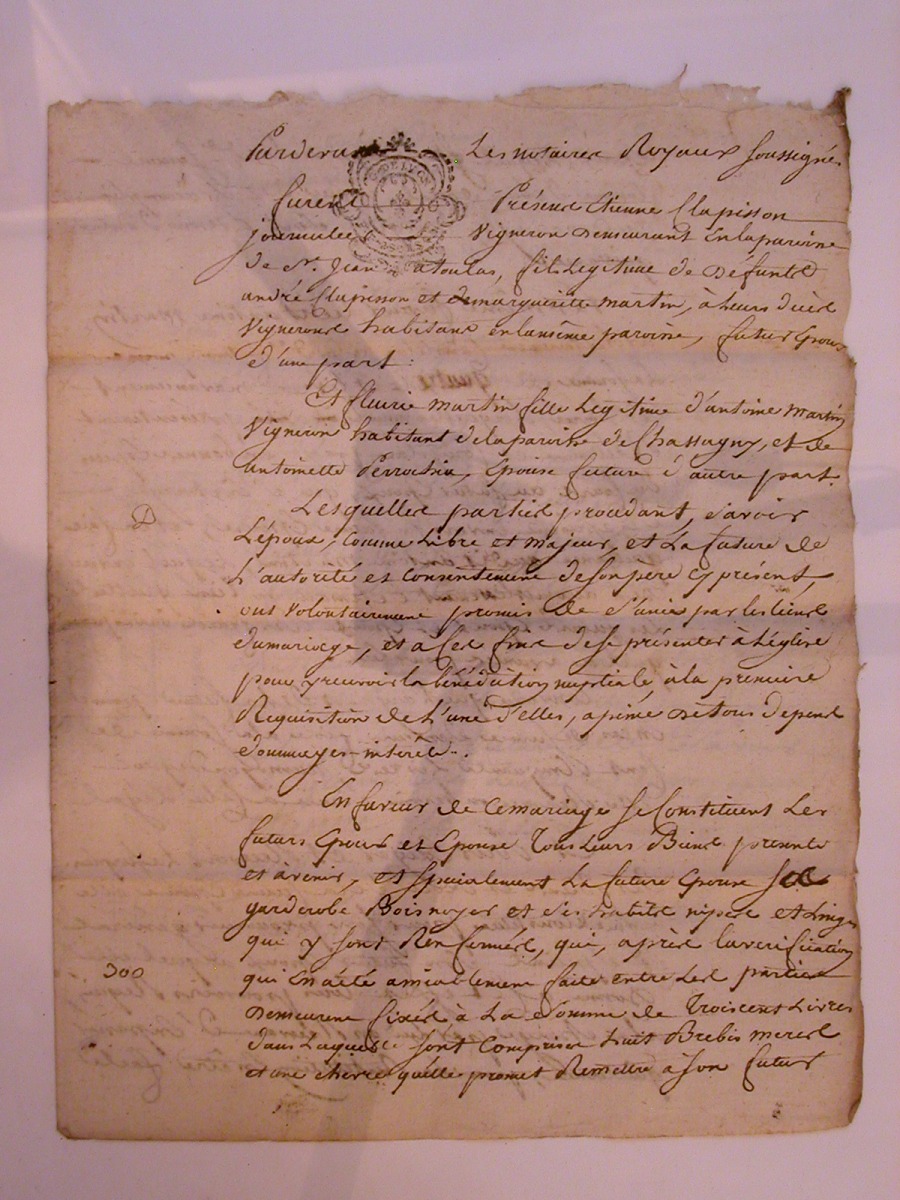 Pardevant Les notaires Royaux soussignés
furent Présens Etienne Clapisson
journalier Vigneron demeurant en la paroisse
de St. Jean fils Legitime de Défunts
andré Clapisson et de marguerite martin, à Leurs décès
Vignerons habitans en la même paroisse, futur Epoux
d'une part :
Et fleurie martin fille Legitime d'antoine Martin
Vigneron habitant de la paroisse de Chassagny, et de
antoinette Epouse future d'autre part.
Lesquelles parties procédant, savoir
L'époux, comme Libre et majeur, et La future de
L'autorité et consentement de son père cy présent,
ont volontairement promis de s'unir par les liens
du mariage, et à ces fins de se présenter à L'église
pour y recevoir la bénédiction nuptiale, à la premiere
Requisition de L'une d'elles, a peine de tous depens
dommages-intérêts.
En faveur de ce mariage se Constituent Les
futurs Epoux et Epouse Tous Leurs Biens présents
et à venir, et spécialement La future Epouse
garderobe Bois noyer et ses habits nipes et Linges
qui y sont Renfermés, qui, après la verification
qui en a été amiablement faite entre Les parties
Demeurent fixés à La somme de Trois cent Livres
300
dans Laquelle sont comprises huit Brebis meres
et une chevre qu'elle promet Remettre à son futur